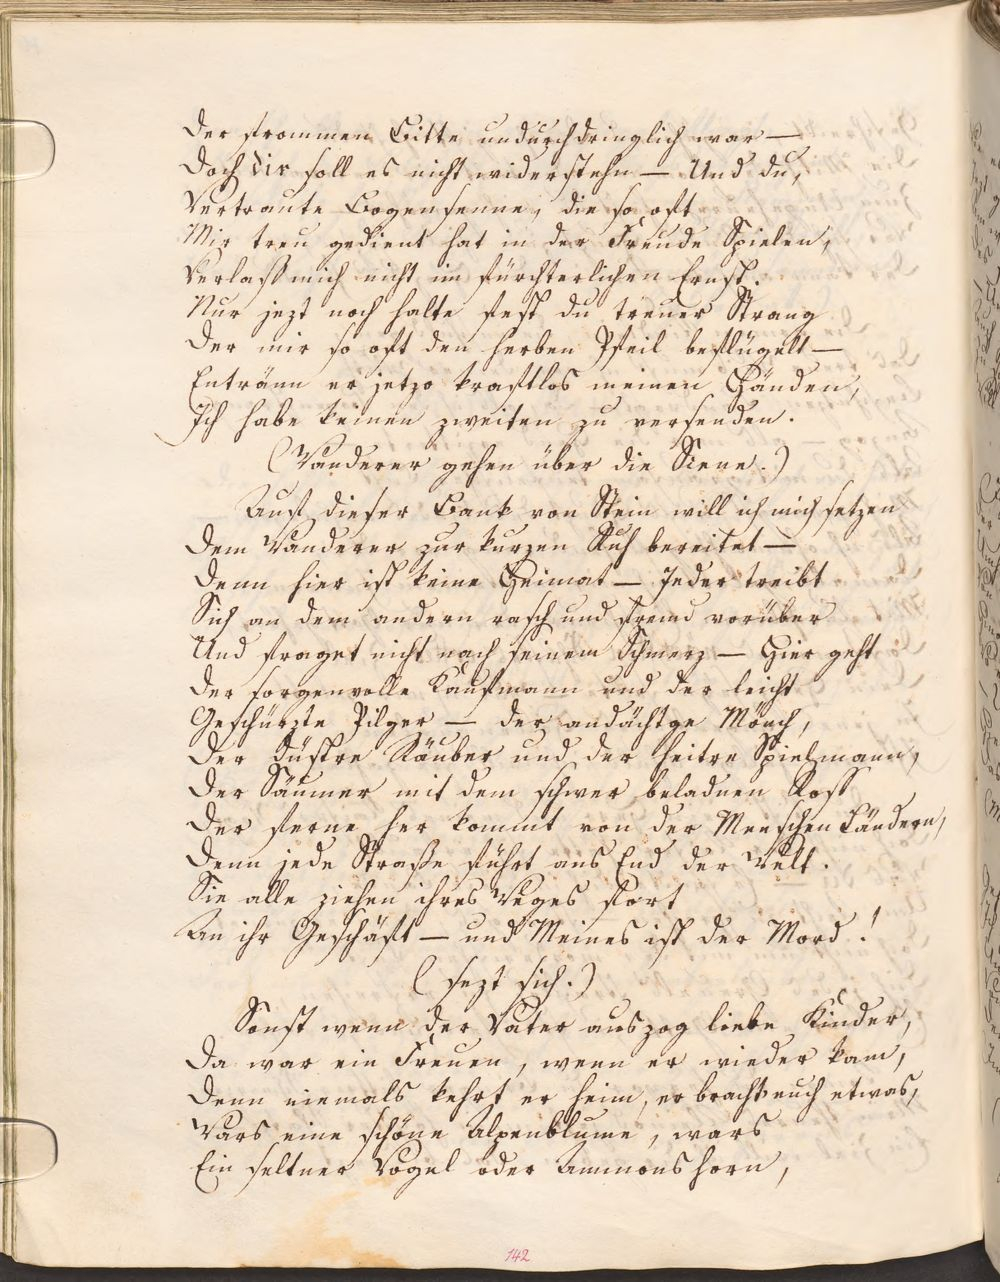 Der frommen Bitte undurchdringlich war —
Doch dir soll es nicht widerstehn — Und du,
Vertraute Bogensenne, die so oft
Mir treu gedient hat in der Freude Spielen,
Verlaß mich nicht im fürchterlichen Ernst.
Nur jezt noch halte fest du treuer Strang
Der mir so oft den herben Pfeil beflügelt —
Entränn er jetzo kraftlos meinen Händen,
Ich habe keinen zweiten zu versenden.
(Wanderer gehen über die Scene.)
Auf dieser Bank von Stein will ich mich setzen
Dem Wanderer zur kurzen Ruh bereitet —
Denn hier ist keine Heimat — Jeder treibt
Sich an dem andern rasch und fremd vorüber
Und fraget nicht nach seinem Schmerz — Hier geht
Der sorgenvolle Kaufmann und der leicht
Geschürzte Pilger — der andächtge Mönch,
Der düstre Räuber und der heitre Spielmann,
Der Säumer mit dem schwer beladnen Roß
Der ferne her kommt von der Menschen Ländern,
Denn jede Straße führt ans End der Welt.
Sie alle ziehen ihres Weges fort
An ihr Geschäft — und Meines ist der Mord!
(sezt sich.)
Sonst wenn der Vater auszog liebe Kinder,
Da war ein Freuen, wenn er wieder kam,
Denn niemals kehrt er heim, er bracht euch etwas,
Wars eine schöne Alpenblume, wars
Ein seltner Vogel oder Ammonshorn,
142